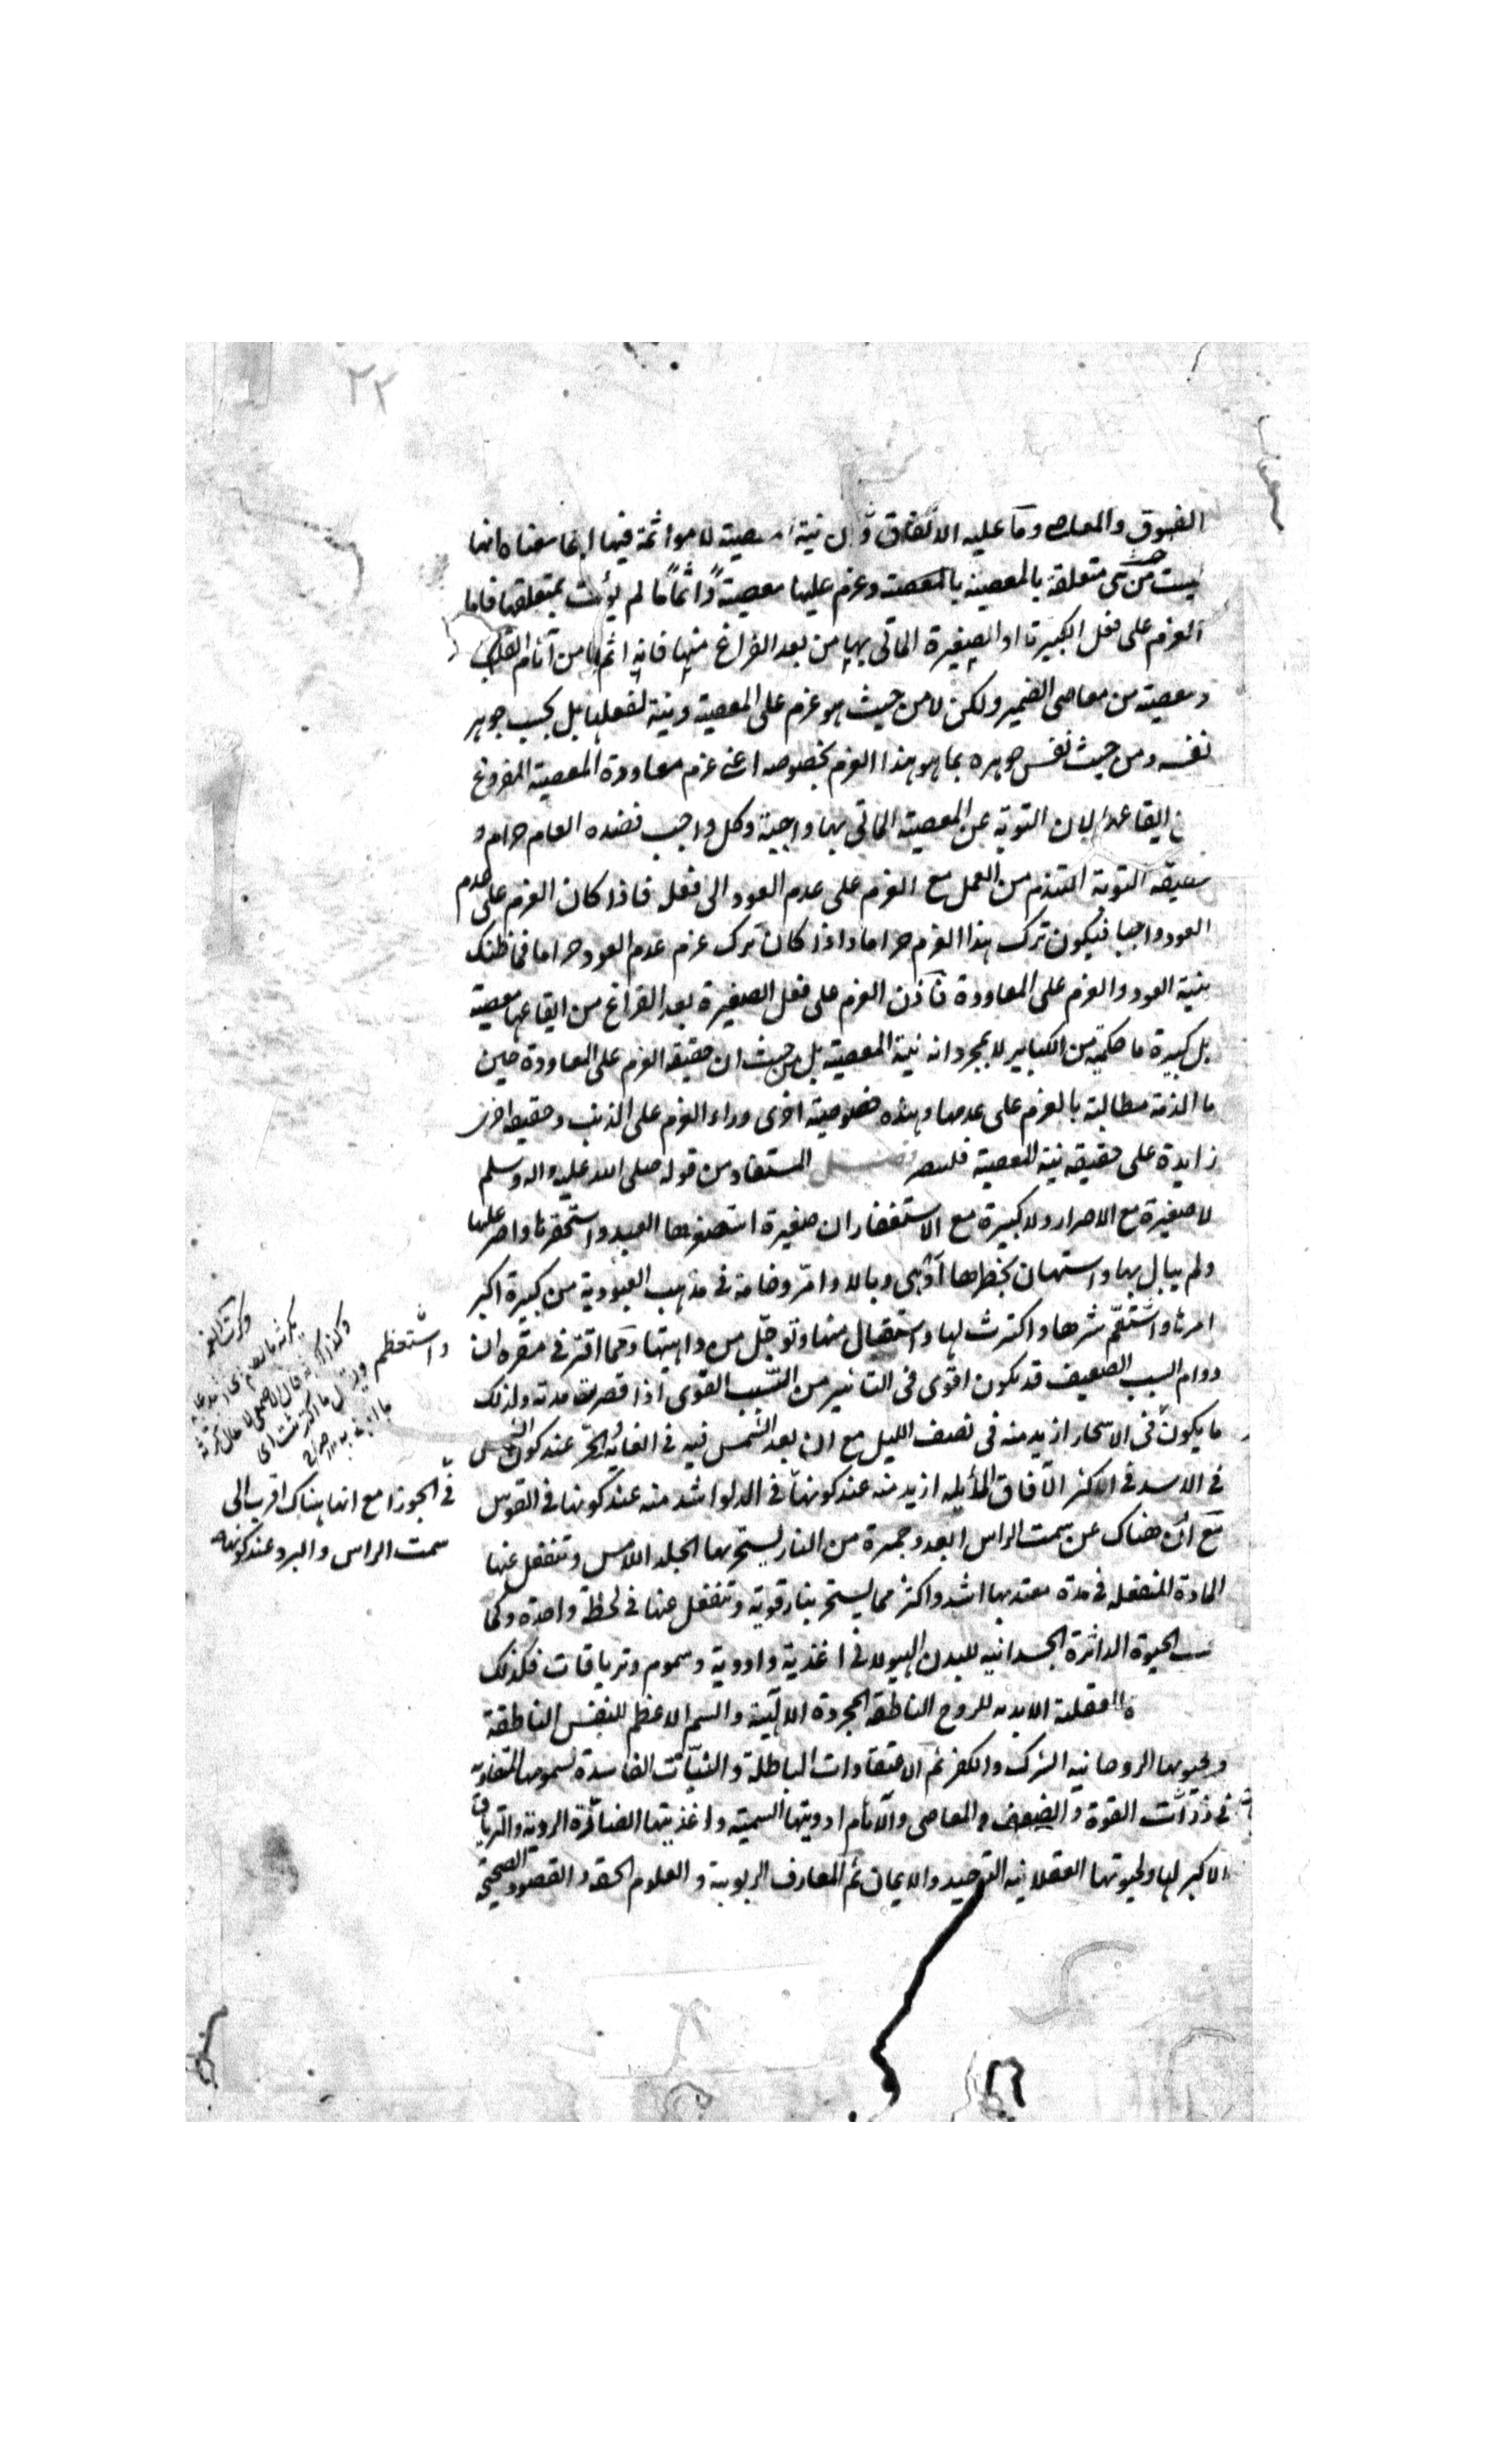 ٢٢
الفسوق والمعاصى وما عليه الاتفاق ان نية المعصية لا مواثمة فيها انما معناه انها
ليست من حيث هى متعلقة بالمعصية بالمعصية وعزم عليها معصية واثما ما لم يؤت بمتعلقها فاما
العزم على فعل الكبيرة او الصغيرة الماتى بها من بعد الفراغ منها فانه اثم من آثام القلب
ومعصية من معاصى الضمير ولكن لا من حيث هو عزم على المعصية ونية لفعلها بل بحسب جوهر
نفسه ومن حيث نفس جوهره بما هو هذا العزم بخصوصه اعنى عزم معاودة المعصية المفروغ
ايقاعها لان التوبة عن المعصية الماتى بها واجبة وكل واجب فضده العام حرام و
حقيقة التوبة التندم من العمل مع العزم على عدم العود الى فعل فاذا كان العزم على عدم
العود واجبا فيكون ترك هذا العزم حراما واذا كان ترك عزم عدم العود حراما فما ظنك
بنية العود والعزم على المعاودة فاذن العزم على فعل الصغيرة بعد الفراغ من ايقاعها معصية
بل كبيرة ما من الكباير لا بمجرد انه نية المعصية بل من حيث ان حقيقة العزم على المعاودة حين
ما الذمة مطالبة بالعزم على عدمها وهذه خصوصية اخرى وراء العزم على الذنب وحقيقة اخرى
زايدة على حقيقة نية المعصية فليتبصر المستفاد من قوله صلى الله عليه واله وسلم
لا صغيرة مع الاصرار ولا كبيرة مع الاستغفار ان صغيرة استصغرها العبد واستحقرها واصر عليها
ولم يبال بها واستهان بخطرها ادهى وبالا وامر وخامة فى مذهب العبودية من كبيرة اكبر
امرها واستعم شرها واكترث لها واستقال منها وتوجل من داهيتها وكما اقتر فى مقره ان
دوام السبب الضعيف قد يكون اقوى فى التاثير من السبب القوى اذا قصرت مدته ولذلك
ما يكون فى الاسحار ازيد منه فى نصف الليل مع ان بعد الشمس فيه فى الغاية والحر عند كون الشمس
فى الاسد فى اكثر الآفاق المايلة ازيد منه عند كونها فى الدلو اشد منه عند كونها فى القوس
مع انه هناك عن سمت الراس ابعد وجمرة من النار يستحر بها الجلد اللامس وتنفعل عنها
المادة المنفعلة فى مدة معتد بها اشد واكثر مما يستحر بنار قوية وتنفعل عنها فى لحظة واحدة وكما
الحيوة الداثرة الجسدانية للبدن الهيولانى اغذية وادوية وسموم وترياقات فكذلك
العقلية الابدية للروح الناطقة المجردة الالهية والسم الاعظم للنفس الناطقة
ولحيوتها الروحانية الشرك والكفر ثم الاعتقادات الباطلة والنيات الفاسدة لسمومها المتفاوتة
فى درجات القوة والضعف والمعاصى والآثام ادويتها السمية واغذيتها الضائرة الردية والترياق
الاكبر لها ولحيوتها العقلانية التوحيد والايمان ثم المعارف الربوبية والعلوم الحقة والقصود الصحيحة
واستعظم
فى الجوزا مع انها هناك اقرب الى
سمت الراس والبرد عند كونها